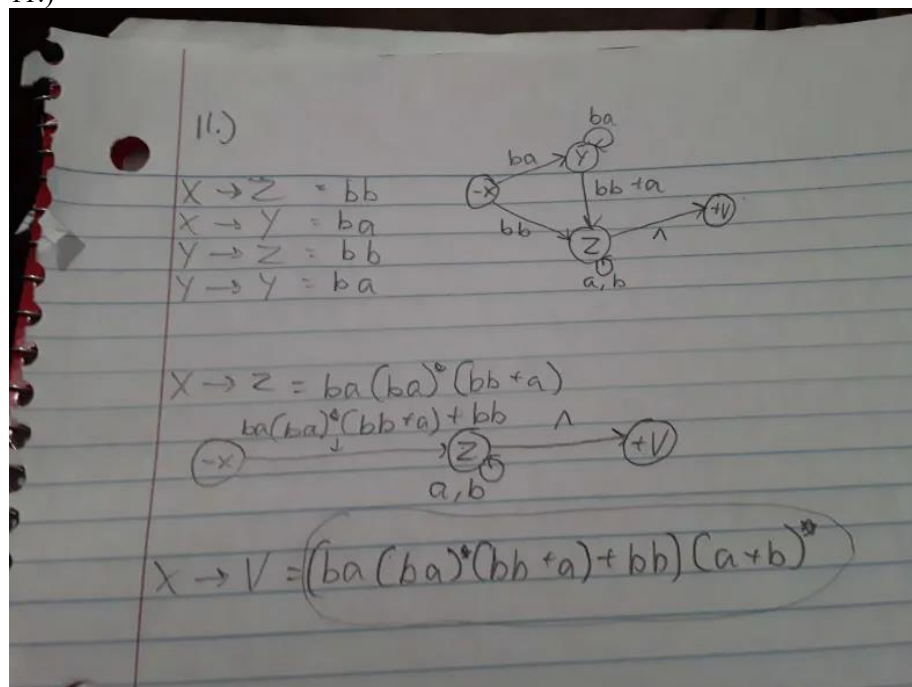 11.)
11.)
X → Z = bb
X → Y = ba
Y → Z = bb
Y → Y = ba
ba
ba
Y
-x
bb +a
+V
bb
Z
Λ
a, b
X → Z = ba(ba)*(bb+a)
ba(ba)*(bb+a) + bb
Λ
-x
Z
+V
a, b
X → V = (ba(ba)*(bb+a)+bb)(a+b)*